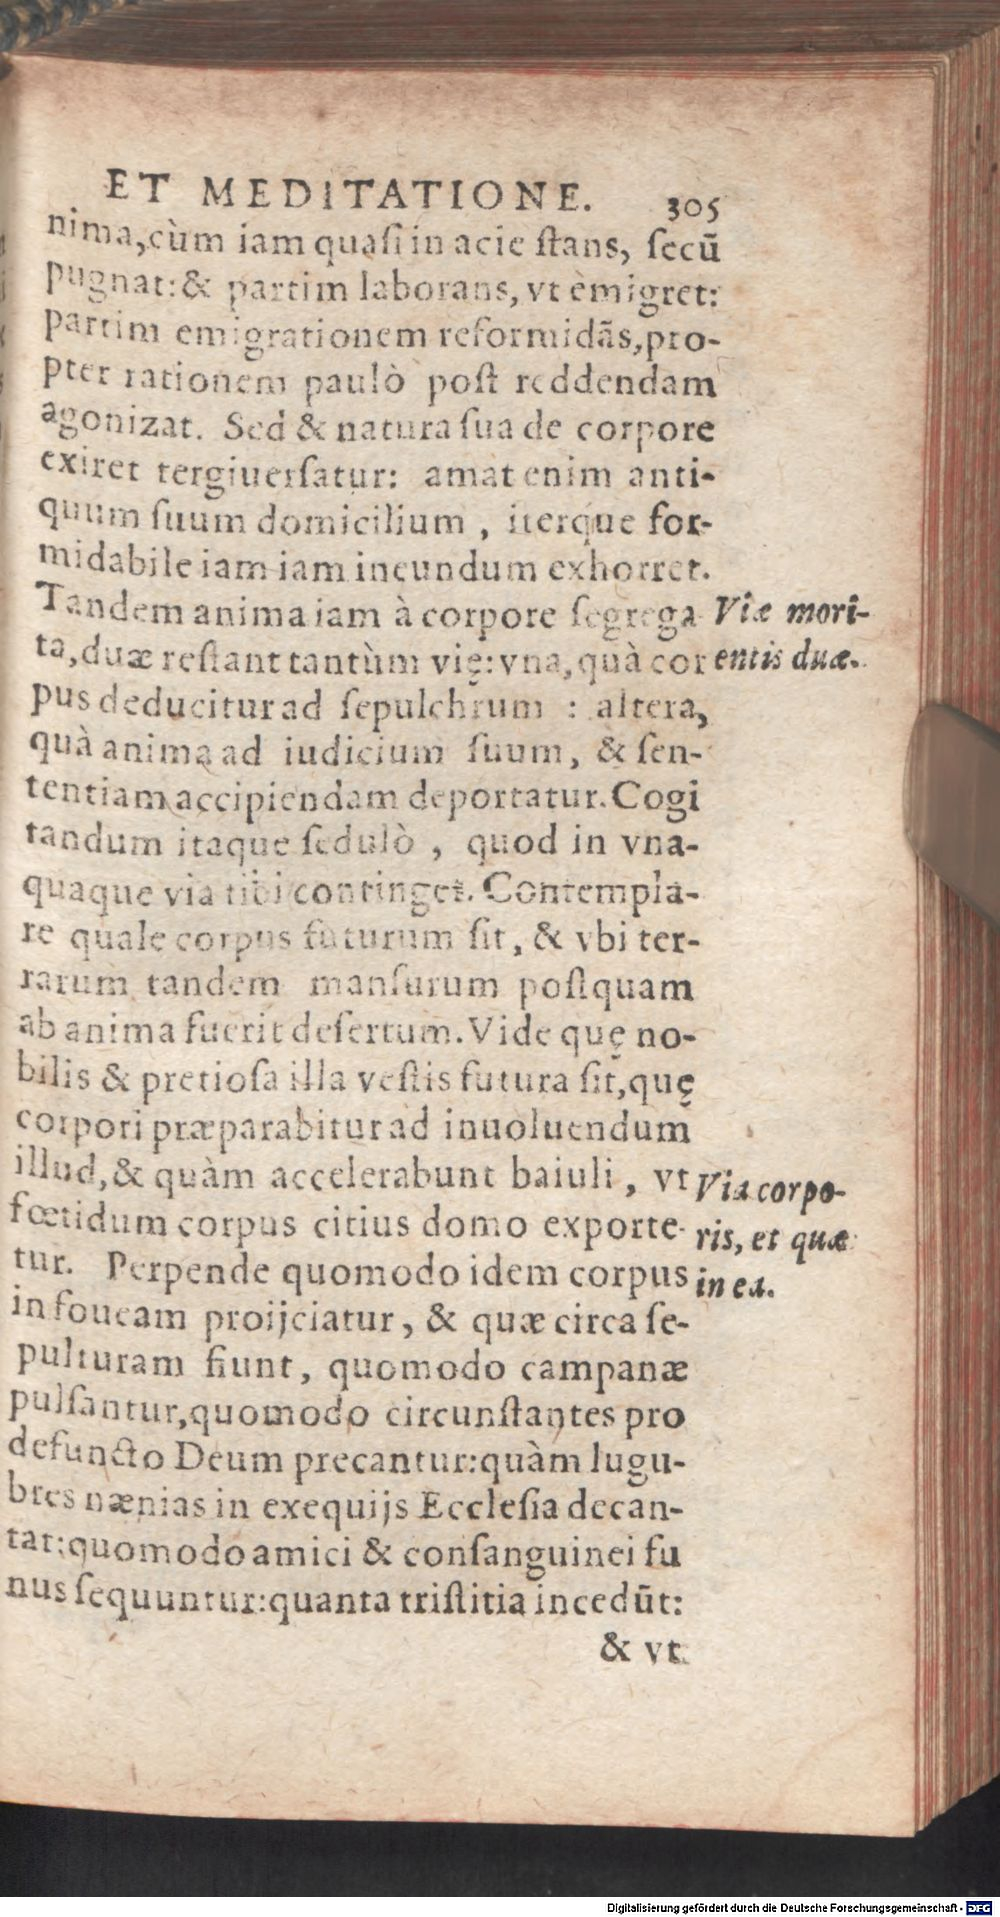 ET MEDITATIONE. 305
nima, cùm iam quasi in acie ſtans, ſecũ
pugnat: & partim laborans, vt èmigret:
partim emigrationem reformidãs, pro-
pter rationem paulò poſt reddendam
agonizat. Sed & natura ſua de corpore
exiret tergiuerſatur: amat enim anti-
quum ſuum domicilium, iterque for-
midabile iam iam ineundum exhorret.
Tandem anima iam à corpore ſegrega
ta, duæ reſtant tantùm vię: vna, quà cor
Viæ mori-
entis duæ.
pus deducitur ad ſepulchrum : altera,
quà anima ad iudicium ſuum, & ſen-
tentiam accipiendam deportatur. Cogi
tandum itaque ſedulò, quod in vna-
quaque via tibi continget. Contempla-
re quale corpus futurum ſit, & vbi ter-
rarum tandem manſurum poſtquam
ab anima fuerit deſertum. Vide quę no-
bilis & pretioſa illa veſtis futura ſit, quę
corpori præparabitur ad inuoluendum
illud, & quàm accelerabunt baiuli, vt
fœtidum corpus citius domo exporte-
tur. Perpende quomodo idem corpus
Via corpo-
ris, et quæ
in ea.
in foueam proijciatur, & quæ circa ſe-
pulturam fiunt, quomodo campanæ
pulſantur, quomodo circunſtantes pro
defuncto Deum precantur: quàm lugu-
bres nænias in exequijs Eccleſia decan-
tat: quomodo amici & conſanguinei fu
nus ſequuntur: quanta triſtitia incedũt:
& vt
Digitalisierung gefördert durch die Deutsche Forschungsgemeinschaft - DFG